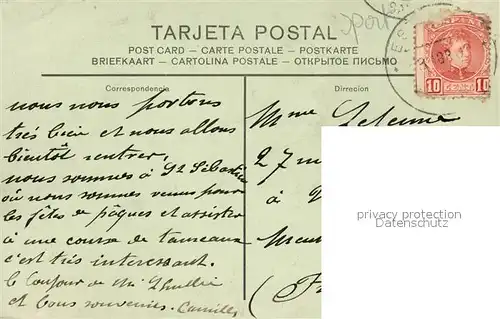 TARJETA POSTAL
POST CARD – CARTE POSTALE – POSTKARTE
BRIEFKAART – CARTOLINA POSTALE – ОТКРЫТОЕ ПИСЬМО
Correspondencia
Dirrecion
10 10
nous nous portons
très bien et nous allons
bientôt rentrer,
nous sommes à St Sébastien
où nous sommes venus pour
les fêtes de pâques et assister
à une course de taureaux
c'est très interessant.
le bonjour de Mr
et bons souvenirs. Camille
Mme
27
à
privacy protection
Datenschutz